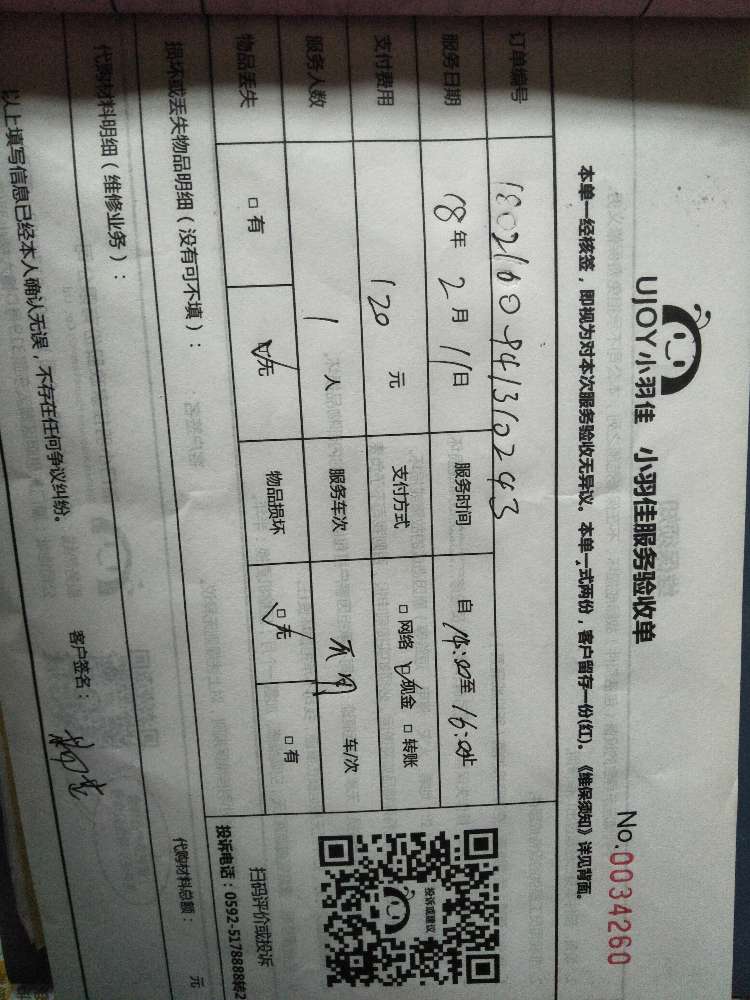 UJOY小羽佳 小羽佳服务验收单
No.0034260
本单一经核签，即视为对本次服务验收无异议。本单一式两份，客户留存一份(红)。《维保须知》详见背面。
订单编号 1802160941310243
服务日期 18年2月11日 服务时间 自14:00至16:00止
支付费用 120元 支付方式 □网络 □√现金 □转账
服务人数 1人 服务车次 不用 车/次
物品丢失 □有 □√无 物品损坏 □√无 □有
投诉或建议
扫码评价或投诉
投诉电话：0592-5178888转2
损坏或丢失物品明细（没有可不填）：
代购材料明细（维修业务）：
代购材料总额： 元
以上填写信息已经本人确认无误，不存在任何争议纠纷。
客户签名：